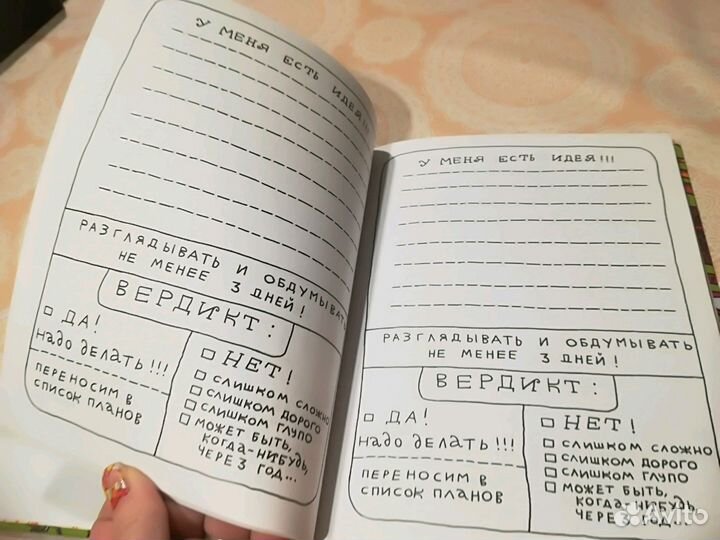 У МЕНЯ ЕСТЬ ИДЕЯ!!!
РАЗГЛЯДЫВАТЬ И ОБДУМЫВАТЬ
НЕ МЕНЕЕ 3 ДНЕЙ!
ВЕРДИКТ:
ДА!
надо делать!!!
ПЕРЕНОСИМ В
СПИСОК ПЛАНОВ
НЕТ!
СЛИШКОМ СЛОЖНО
СЛИШКОМ ДОРОГО
СЛИШКОМ ГЛУПО
МОЖЕТ БЫТЬ,
КОГДА-НИБУДЬ,
ЧЕРЕЗ ГОД...
У МЕНЯ ЕСТЬ ИДЕЯ!!!
РАЗГЛЯДЫВАТЬ И ОБДУМЫВАТЬ
НЕ МЕНЕЕ 3 ДНЕЙ!
ВЕРДИКТ:
ДА!
надо делать!!!
ПЕРЕНОСИМ В
СПИСОК ПЛАНОВ
НЕТ!
СЛИШКОМ СЛОЖНО
СЛИШКОМ ДОРОГО
СЛИШКОМ ГЛУПО
МОЖЕТ БЫТЬ,
КОГДА-НИБУДЬ,
ЧЕРЕЗ ГОД...
Avito